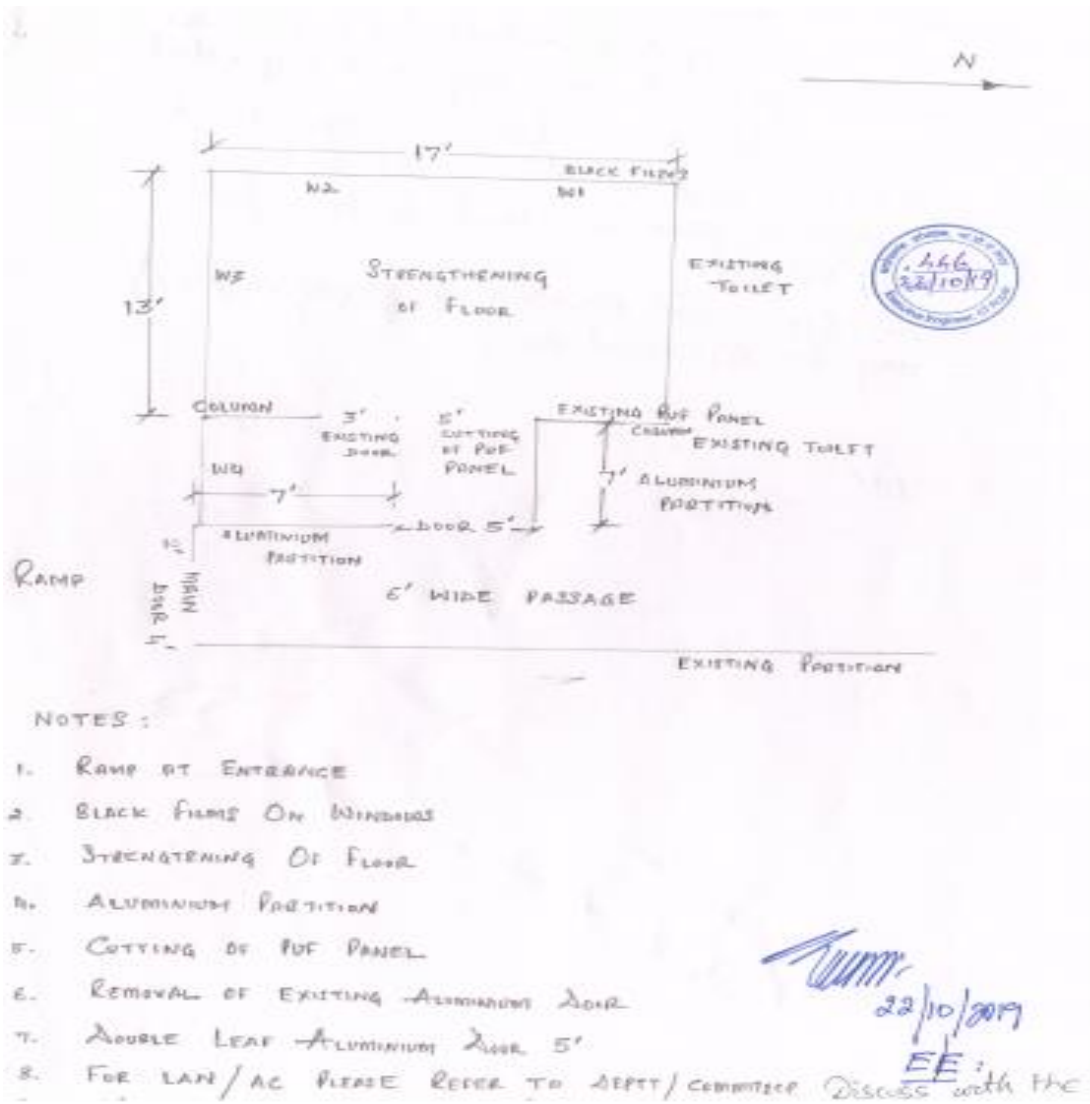 N
17'
BLACK FILMS
W2
W1
W3
STRENGTHENING
OF FLOOR
EXISTING
TOILET
13'
22/10/19
COLUMN
3'
EXISTING
DOOR
5'
CUTTING
OF PUF
PANEL
EXISTING PUF PANEL
COLUMN
EXISTING TOILET
W4
7'
7' ALUMINIUM
PARTITION
ALUMINIUM
PARTITION
DOOR 5'
RAMP
MAIN
DOOR 5'
6' WIDE PASSAGE
EXISTING PARTITION
NOTES :
1. RAMP AT ENTRANCE
2. BLACK FILMS ON WINDOWS
3. STRENGTRNING OF FLOOR
4. ALUMINIUM PARTITION
5. CUTTING OF PUF PANEL
6. REMOVAL OF EXISTING ALUMINIUM DOOR
7. DOUBLE LEAF ALUMINIUM DOOR 5'
22/10/2019
EE :
8. FOR LAN/AC PLEASE REFER TO DEPTT/COMMITTEE Discuss with the